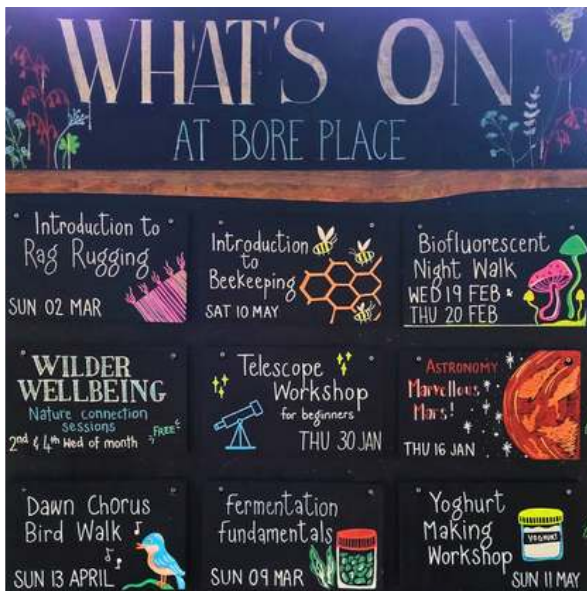 WHAT'S ON
AT BORE PLACE
Introduction to
Rag Rugging
SUN 02 MAR
Introduction
to
Beekeeping
SAT 10 MAY
Biofluorescent
Night Walk
WED 19 FEB &
THU 20 FEB
WILDER
WELLBEING
Nature connection
sessions
2nd & 4th Wed of month
FREE
Telescope
Workshop
for beginners
THU 30 JAN
ASTRONOMY
Marvellous
Mars!
THU 16 JAN
Dawn Chorus
Bird Walk
SUN 13 APRIL
Fermentation
fundamentals
SUN 09 MAR
Yoghurt
Making
Workshop
YOGHURT
SUN 11 MAY